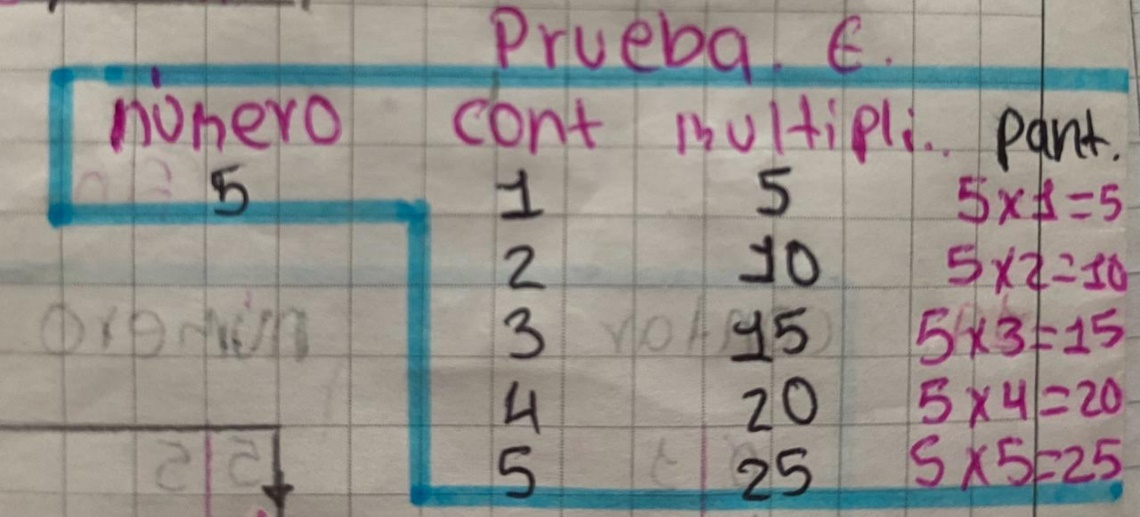 Prueba. E.
número cont multipli.. pant.
5 1 5 5x1=5
2 10 5x2=10
3 15 5x3=15
4 20 5x4=20
5 25 5x5=25